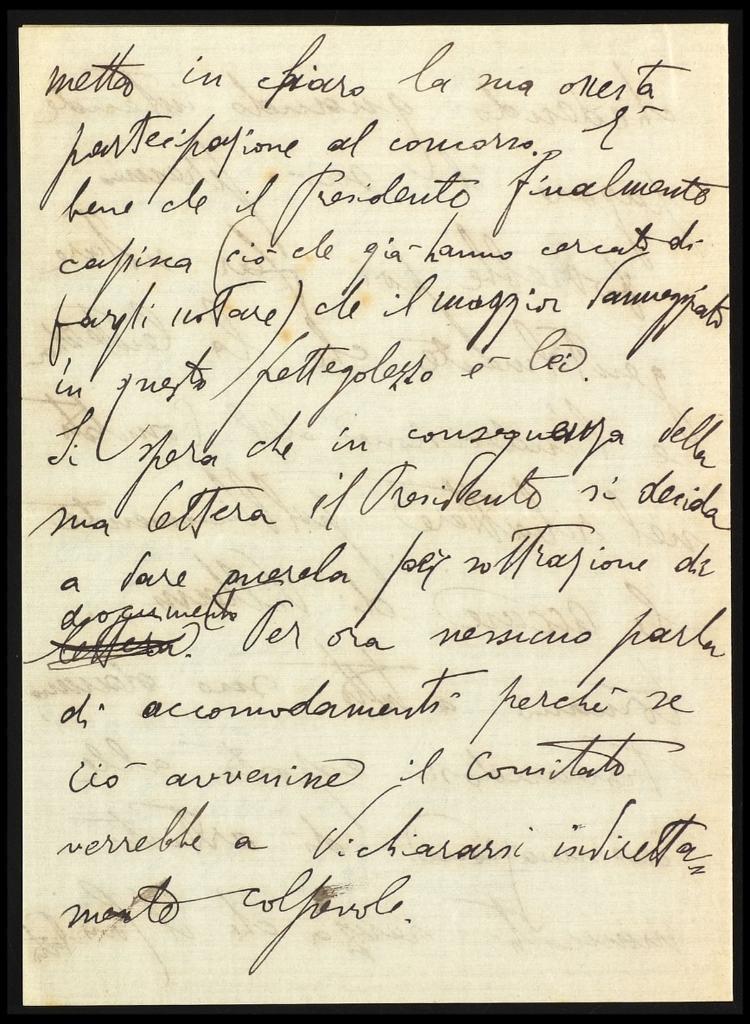 metto in chiaro la sua onesta
partecipazione al concorso. È
bene che il Presidente finalmente
capisca (ciò che già hanno cercato di
fargli notare) che il maggior danneggiato
in questo pettegolezzo è lei.
Si spera che in conseguenza della
sua lettera il Presidente si decida
a dare querela per sottrazione di
documento
lettera. Per ora nessuno parla
di accomodamenti perchè se
ciò avvenisse il Comitato
verrebbe a dichiararsi indiretta=
mente colpevole.